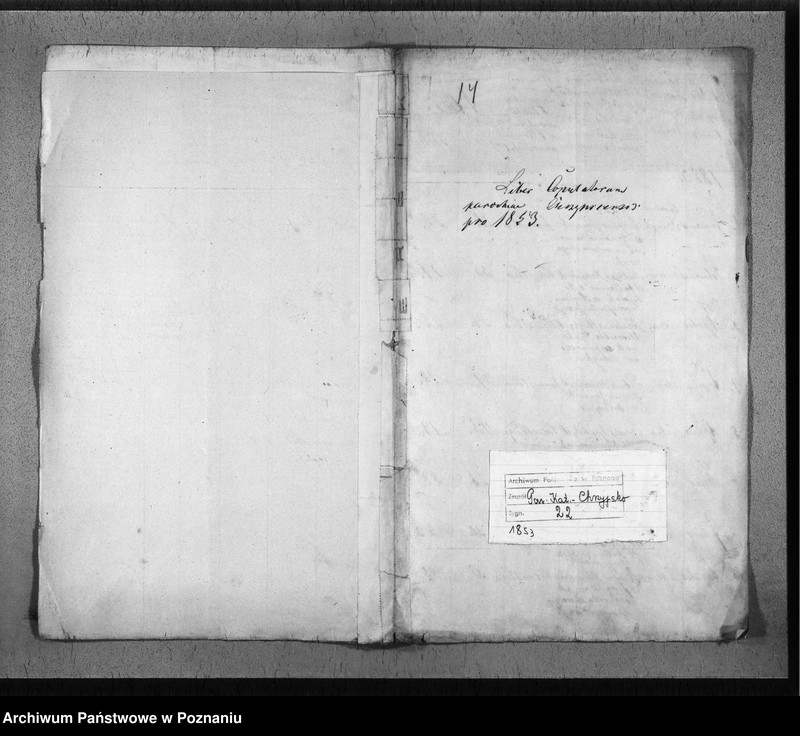 14
Liber Copulatorum
parochiae
pro 1853.
Archiwum Państwowe w Poznaniu
Zespół Par. Kat. - Chrzypsko
Sygn. 22
1853
Archiwum Państwowe w Poznaniu